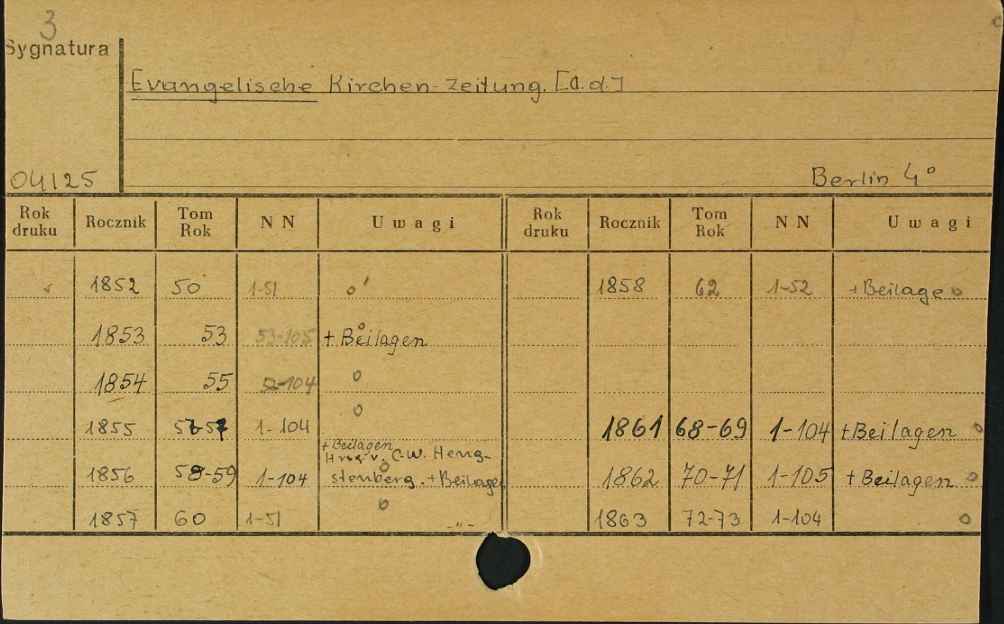 3
Sygnatura
Evangelische Kirchen-Zeitung. [a.d.]
04125
Berlin 4°
Rok druku Rocznik Tom Rok NN Uwagi Rok druku Rocznik Tom Rok NN Uwagi
1852 50 1-51 o 1858 62 1-52 + Beilage o
1853 53 53-105 + Beilagen o
1854 55 52-104 o
1855 56-57 1-104 o 1861 68-69 1-104 + Beilagen o
+ Beilagen
Hrsg. v. C.W. Heng-
1856 58-59 1-104 stenberg. + Beilagen o 1862 70-71 1-105 + Beilagen o
1857 60 1-51 o -"- 1863 72-73 1-104 o